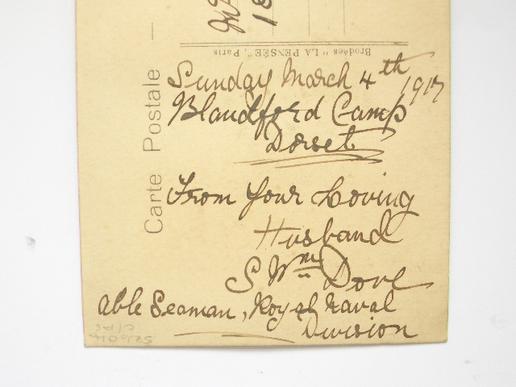 Sunday March 4th 1917
Blandford Camp
Dorset
From Your Loving
Husband
S Wm Dove
Able Seaman, Royal Naval
Division
Carte Postale
Brodées "LA PENSÉE", Paris